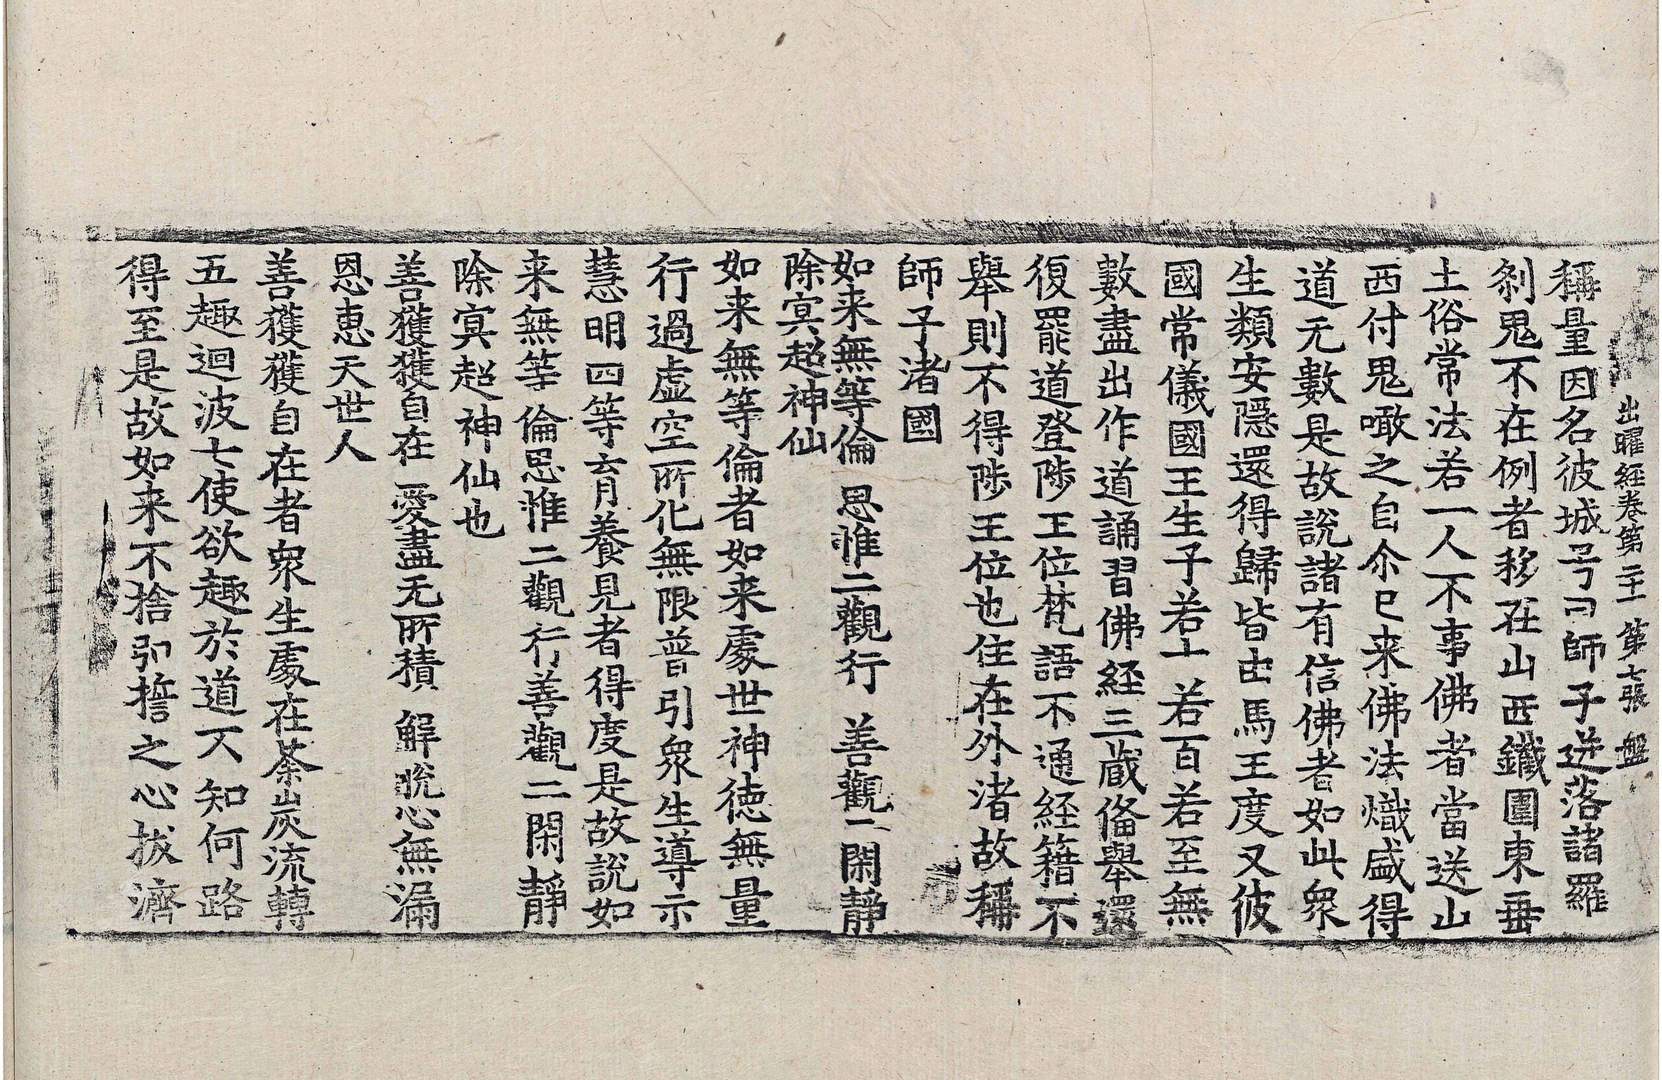 出曜経卷第二十一 第七張 盤
稱量因名彼城号曰師子迸落諸羅
剎鬼不在例者移在山西鐵圍東垂
土俗常法若一人不事佛者當送山
西付鬼噉之自尒已来佛法熾盛得
道无數是故說諸有信佛者如此衆
生類安隱還得歸皆由馬王度又彼
國常儀國王生子若十若百若至無
數盡出作道誦習佛経三蔵俻舉還
復罷道登陟王位梵語不通経籍不
舉則不得陟王位也住在外渚故稱
師子渚國
如来無等倫 思惟二觀行 善觀二閑靜
除冥超神仙
如来無等倫者如来處世神徳無量
行過虛空所化無限普引衆生導示
慧明四等育養見者得度是故說如
来無等倫思惟二觀行善觀二閑靜
除冥超神仙也
善獲獲自在 愛盡无所積 解脫心無漏
恩恵天世人
善獲獲自在者衆生處在荼炭流轉
五趣迴波七使欲趣於道不知何路
得至是故如来不捨弘誓之心拔濟